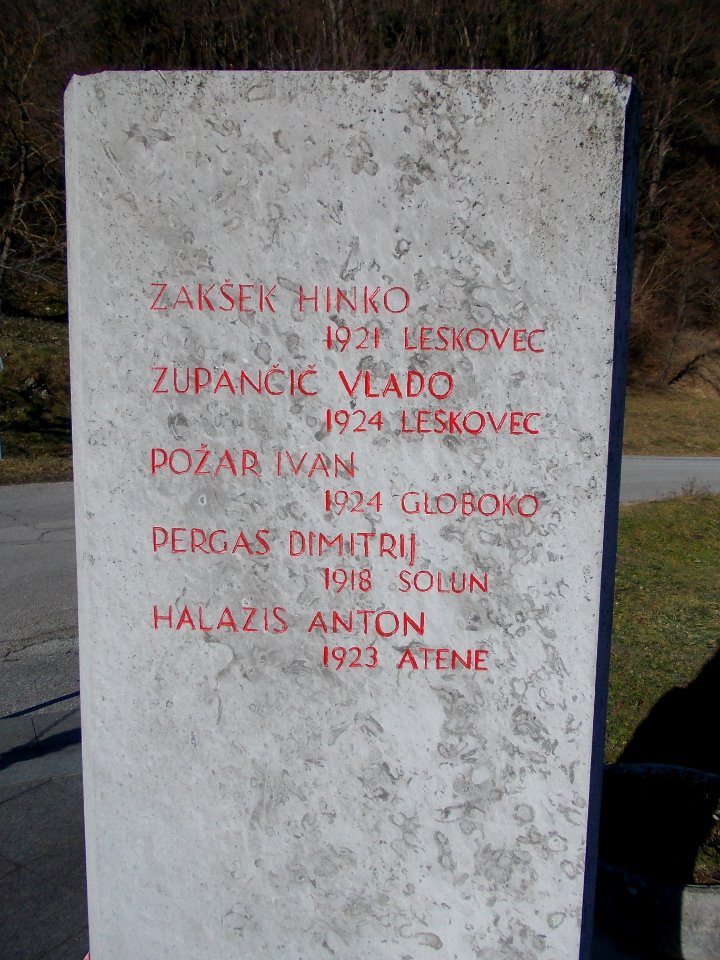 ZAKŠEK HINKO
1921 LESKOVEC
ZUPANČIČ VLADO
1924 LESKOVEC
POŽAR IVAN
1924 GLOBOKO
PERGAS DIMITRIJ
1918 SOLUN
HALAZIS ANTON
1923 ATENE